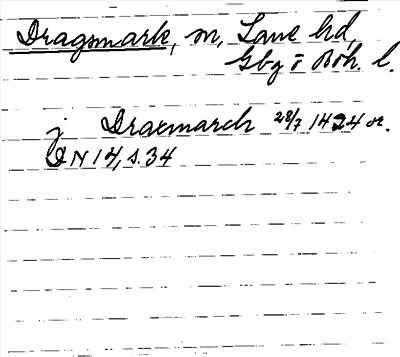 Dragsmark, m, Lane hd,
Gbg o Boh. l.
j Draxmarch 28/7 1424 or.
DN 14, s. 34